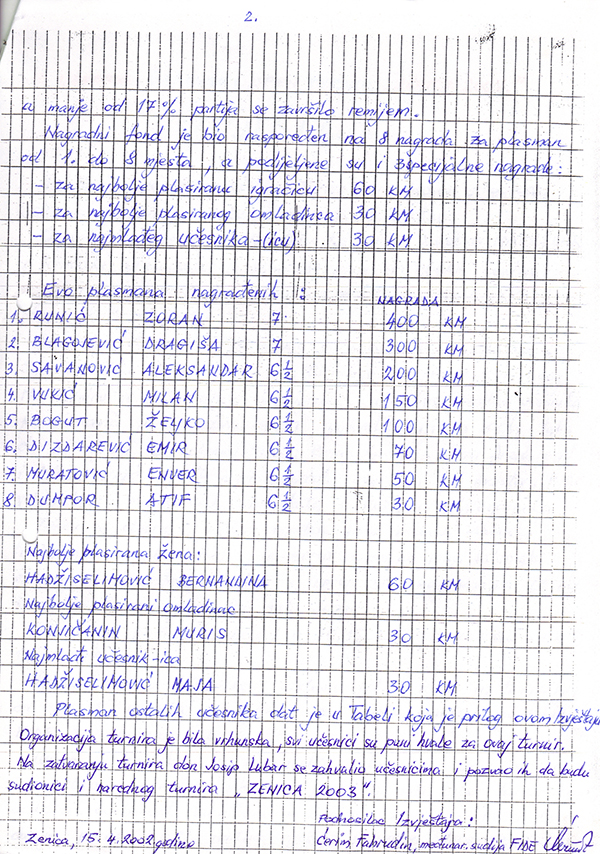 2.
a manje od 17% partija se završilo remijem.
Nagradni fond je bio raspoređen na 8 nagrada za plasman
od 1. do 8 mjesta, a podijeljene su i 3 specijalne nagrade:
- za najbolje plasiranu igračicu 60 KM
- za najbolje plasiranog omladinca 30 KM
- za najmlađeg učesnika-(icu) 30 KM
Evo plasmana nagrađenih : NAGRADA
1. RUNIĆ ZORAN 7 400 KM
2 BLAGOJEVIĆ DRAGIŠA 7 300 KM
3. SAVANOVIĆ ALEKSANDAR 6 1/2 200 KM
4. VUKIĆ MILAN 6 1/2 150 KM
5. BOGUT ŽELJKO 6 1/2 100 KM
6. DIZDAREVIĆ EMIR 6 1/2 70 KM
7. MURATOVIĆ ENVER 6 1/2 50 KM
8 DUMPOR ATIF 6 1/2 30 KM
Najbolje plasirana žena:
HADŽISELIMOVIĆ BERNANDINA 60 KM
Najbolje plasirani omladinac
KONJIČANIN MURIS 30 KM
Najmlađi učesnik-ica
HADŽISELIMOVIĆ MAJA 30 KM
Plasman ostalih učesnika dat je u Tabeli koja je prilog ovom Izvještaju
Organizacija turnira je bila vrhunska, svi učesnici su puni hvale za ovaj turnir.
Na zatvaranju turnira don Josip Lubar se zahvalio učesnicima i pozvao ih da budu
sudionici i narednog turnira "ZENICA 2003".
Podnosilac Izvještaja:
Zenica, 15.4.2002.godine Ćerim Fahrudin, međunar. sudija FIDE